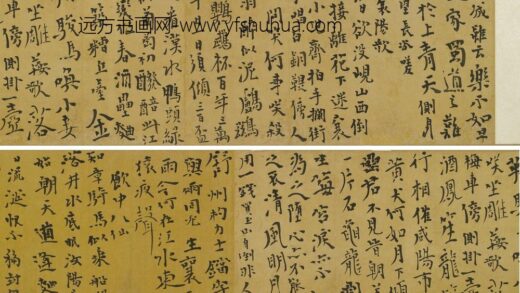 远方书画网 www.yfshuhua.com
城雖云樂不如早
家蜀道之難
於上青天側身
望長咨嗟
襄陽歌
日欲沒峴山西倒
接離花下迷襄
小兒齊拍手攔街
白銅鞮傍人
笑何事笑殺
醉似泥鸕鶿
鸚鵡杯百年三萬
日須傾三百盃
漢水鴨頭綠
萄初醱醅此江
春酒壘麴
築糟丘臺金
駿馬喚小妾
坐雕鞍歌落
車傍側掛一壺
笑坐雕鞍歌
車傍側掛一壺
酒鳳笙龍
行相催咸陽市
黃犬何如月下傾
君不見晉朝
一片石龜龍剝
生莓苔淚亦不
為之墮心亦不能
之哀清風明月
用一錢買玉山自倒非人
舒州杓力士鐺李
與爾同死生襄
雨今何在江水東
猿夜聲
飲中八仙
知章騎馬似乘船
落井水底眠汝陽
始朝天道逢麴
流涎恨不移封